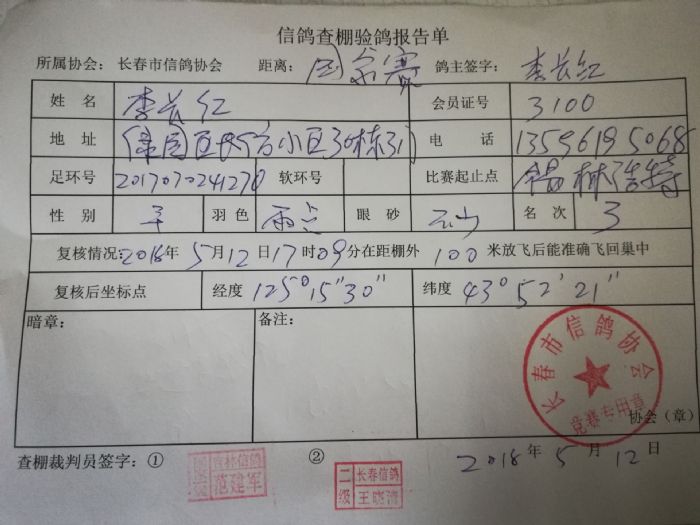 信鸽查棚验鸽报告单
所属协会：长春市信鸽协会 距离：国家赛 鸽主签字：李长红
姓 名 李长红 会员证号 3100
地 址 绿园区 小区30栋 电 话
足环号 软环号 比赛起止点 锡林浩特
性 别 羽色 雨点 眼 砂 名 次 3
复核情况：2018年5月12日17时09分在距棚外 100 米放飞后能准确飞回巢中
复核后坐标点 经度 125°15"30" 纬度 43°52'21"
暗章： 备注：
长春市信鸽协会
竞赛专用章
协会（章）
查棚裁判员签字：① ② 2018年5月12日
吉林信鸽
范建军
二级
长春信鸽